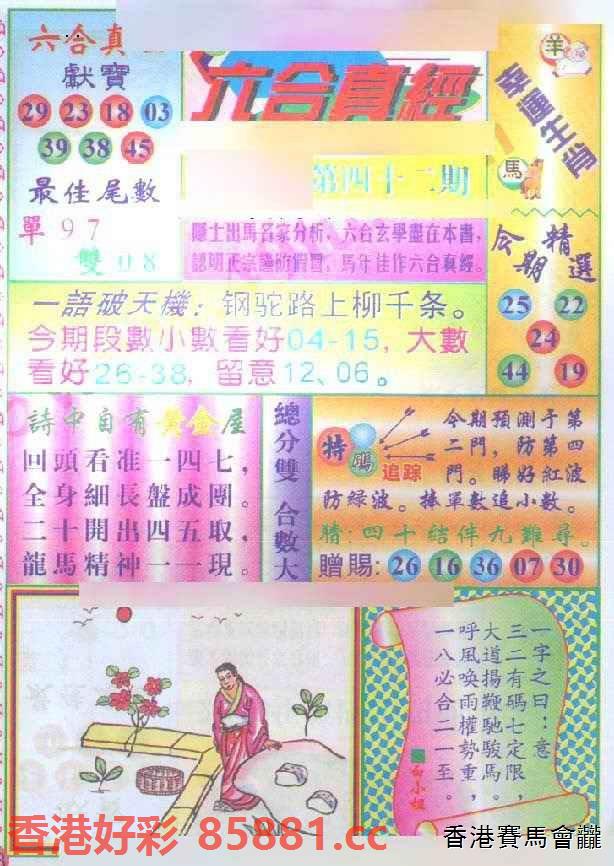 六合真
獻寶
29 23 18 03
39 38 45
最佳尾數
單 9 7
雙 0 8
六合真經
第四十二期
隱士出馬名家分析,六合玄學盡在本書,
認明正宗謹防假冒,馬年佳作六合真經。
羊
幸運生肖
馬
今期
精選
25 22
24
44 19
一語破天機:钢驼路上柳千条。
今期段數小數看好04-15,大數
看好26-38,留意12、06。
詩中自有黃金屋
回頭看准一四七,
全身細長盤成團。
二十開出四五取,
龍馬精神一一現。
總分雙 合數大
特碼
追踪
今期預測予第
二門,防第四
門。睇好紅波
防綠波。捧單數追小數。
猜:四十结伴九難尋。
贈賜:26 16 36 07 30
一字之曰:意
三二有碼七定限,
大道揚鞭馳駿馬。
呼風喚雨權勢重,
一八必合二一至。
白小姐
香港好彩 85881.cc
香港賽馬會